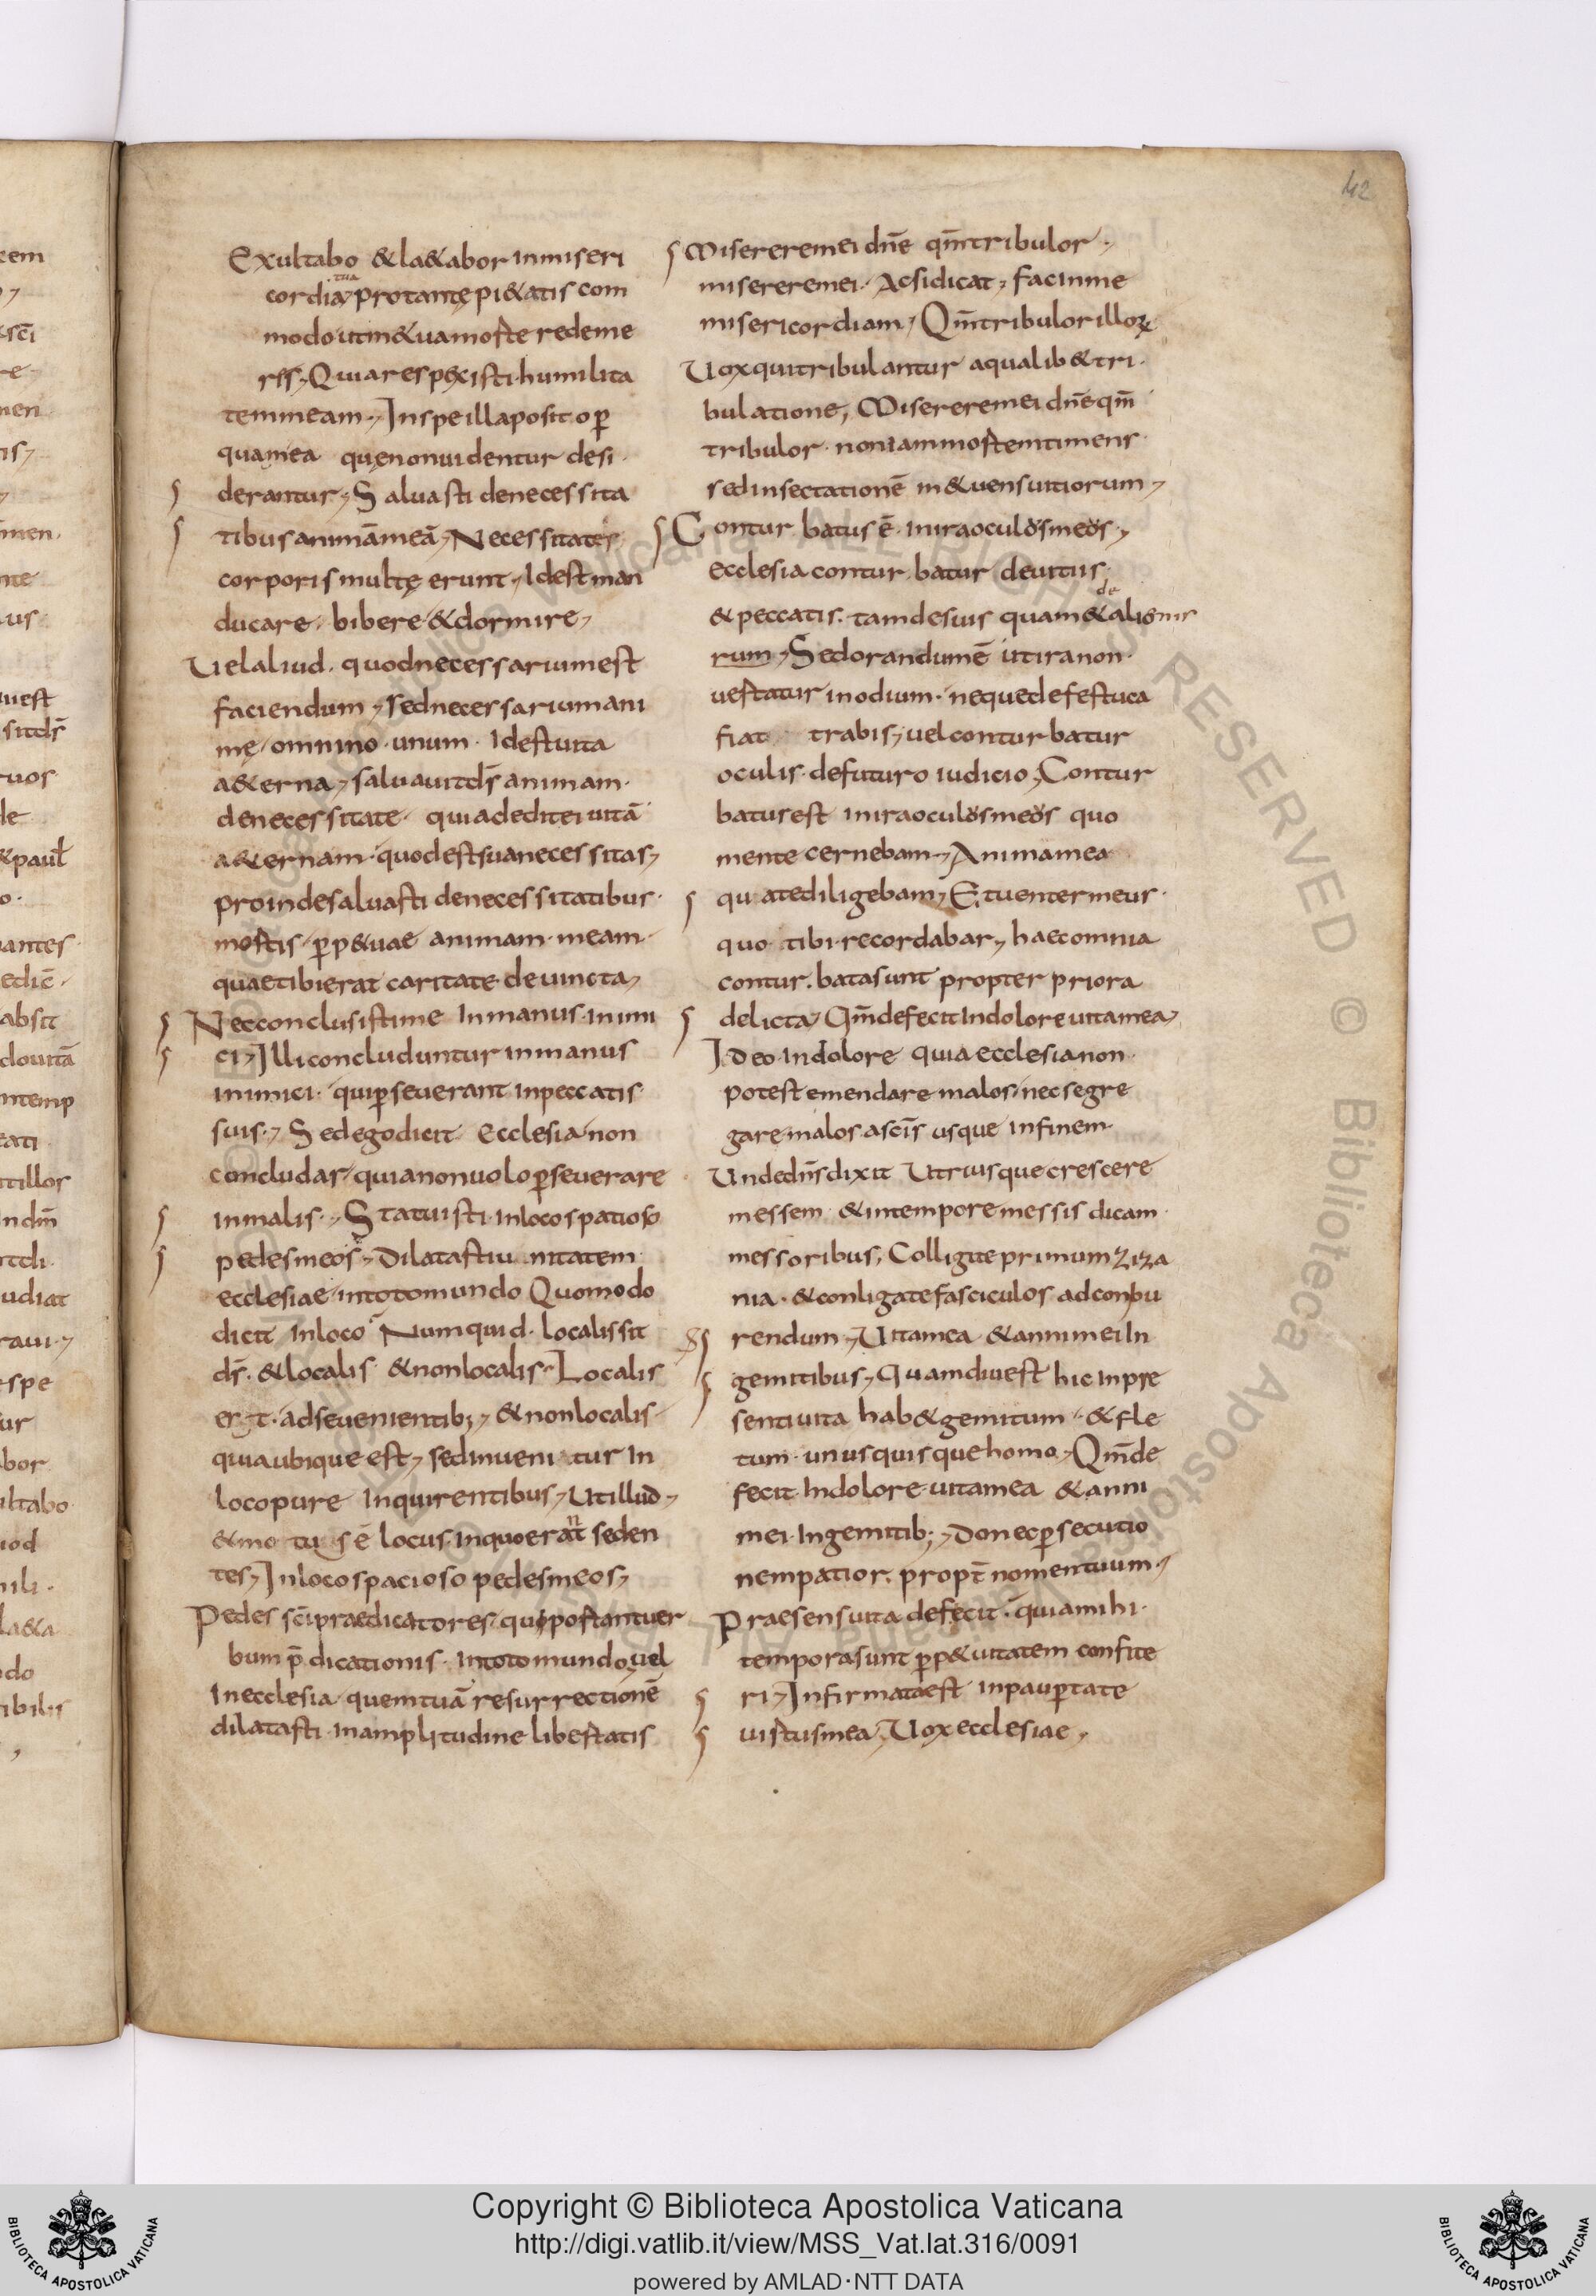 42
Exultabo &la&abor inmiseri
cordia tua protantę pi&atis com
modo utin&uamorte redeme
ris, Quia respexisti humilita
temmeam, Inspe illa posito p̄
quamea quęnonuidentur desi
derantur, Saluasti denecessita
tibus animāmeā, Necessitates
corporis multę erunt, Idest man
ducare, bibere, &dormire,
Uelaliud. quodnecessariumest
faciendum, sednecessariumani
mę, omnino unum. Idestuita
a&erna, saluauitds̄ animam.
denecessitate. quiadeditei uitā
a&ernam. quodestsuanecessitas,
proindesaluasti denecessitatibus.
mortis p̄p&uae animam meam.
quaetibierat caritate deuincta,
Necconclusistime Inmanus inimi
ci, Illi concluduntur inmanus
inimici. quip̄seuerant inpeccatis
suis, Sedego dicit ecclesia non
concludar, quianonuolo p̄seuerare
inmalis, Statuisti inloco spatioso
pedesmeos, Dilatastiu nitatem
ecclesiae intotomundo Quomodo
dicit inloco Numquid localissit
ds̄. &localis &nonlocalis Localis
er t. adseuenientib;, &nonlocalis
quiaubique est, sedinueni tur In
locopure Inquirentibus, Utillud,
&mo tus ē locus. Inquoerant seden
tes, Inlocospacioso pedesmeos,
Pedes sc̄i praedicatores, qui portantuer
bum p̄dicationis. Intotomundo, uel
Inecclesia quemtuā resurrectionē
dilatasti inamplitudine libertatis
Misereremei dn̄e qm̄tribulor.
misereremei. Acsidicat, facinme
misericordiam, Qm̄tribulor illoꝝ
Uoxquitribulantur aqualib&tri
bulatione, Misereremei dn̄e qm̄
tribulor. noniammortemtimens
sedinsectationē in&uensuitiorum,
Conturbatus ē. iniraoculosmeos,
ecclesia conturbatur deuitiis
&peccatis. tamdesuis quam& de alienis
rum, Sedorandumē utiranon.
uertatur inodium. nequedefestuca
fiat trabis, uelconturbatur
oculis. defuturo iudicio, Contur
batusest iniraoculosmeos quo
mente cernebam, Animamea
qu atediligebam, Etuentermeus.
quo tibi recordabar, haecomnia
conturbatasunt propter priora
delicta, Qm̄defecitIndolore uitamea,
Ideo Indolore quia ecclesianon
potestemendare malos, necsegre
gare malos asc̄is usque infinem
Undedn̄sdixit Utriusquecrescere
messem &intempore messis dicam
messoribus, Colligiteprimum ziza
nia. &conligatefasciculos adconbu
rendum, Uitamea &annimeiIn
gemitibus, Quamdiuest hic inpre
sentiuita hab&gemitum. &fle
tum. unusquisquehomo, Qm̄de
fecit Indolore uitamea &anni
mei Ingemitib;, Donecp̄secutio
nempatior. propt̄ nomentuum,
Praesensuita defecit. quiamihi.
temporasunt p̄p&uitatem confite
ri, Infirmataest inpaup̄tate
uirtusmea, Uoxecclesiae,
Copyright © Biblioteca Apostolica Vaticana
http://digi.vatlib.it/view/MSS_Vat.lat.316/0091
powered by AMLAD·NTT DATA
BIBLIOTECA APOSTOLICA VATICANA
BIBLIOTECA APOSTOLICA VATICANA